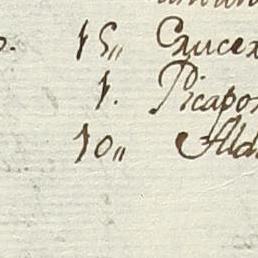 15,, Crucex
1. Picapor
10,, Alda